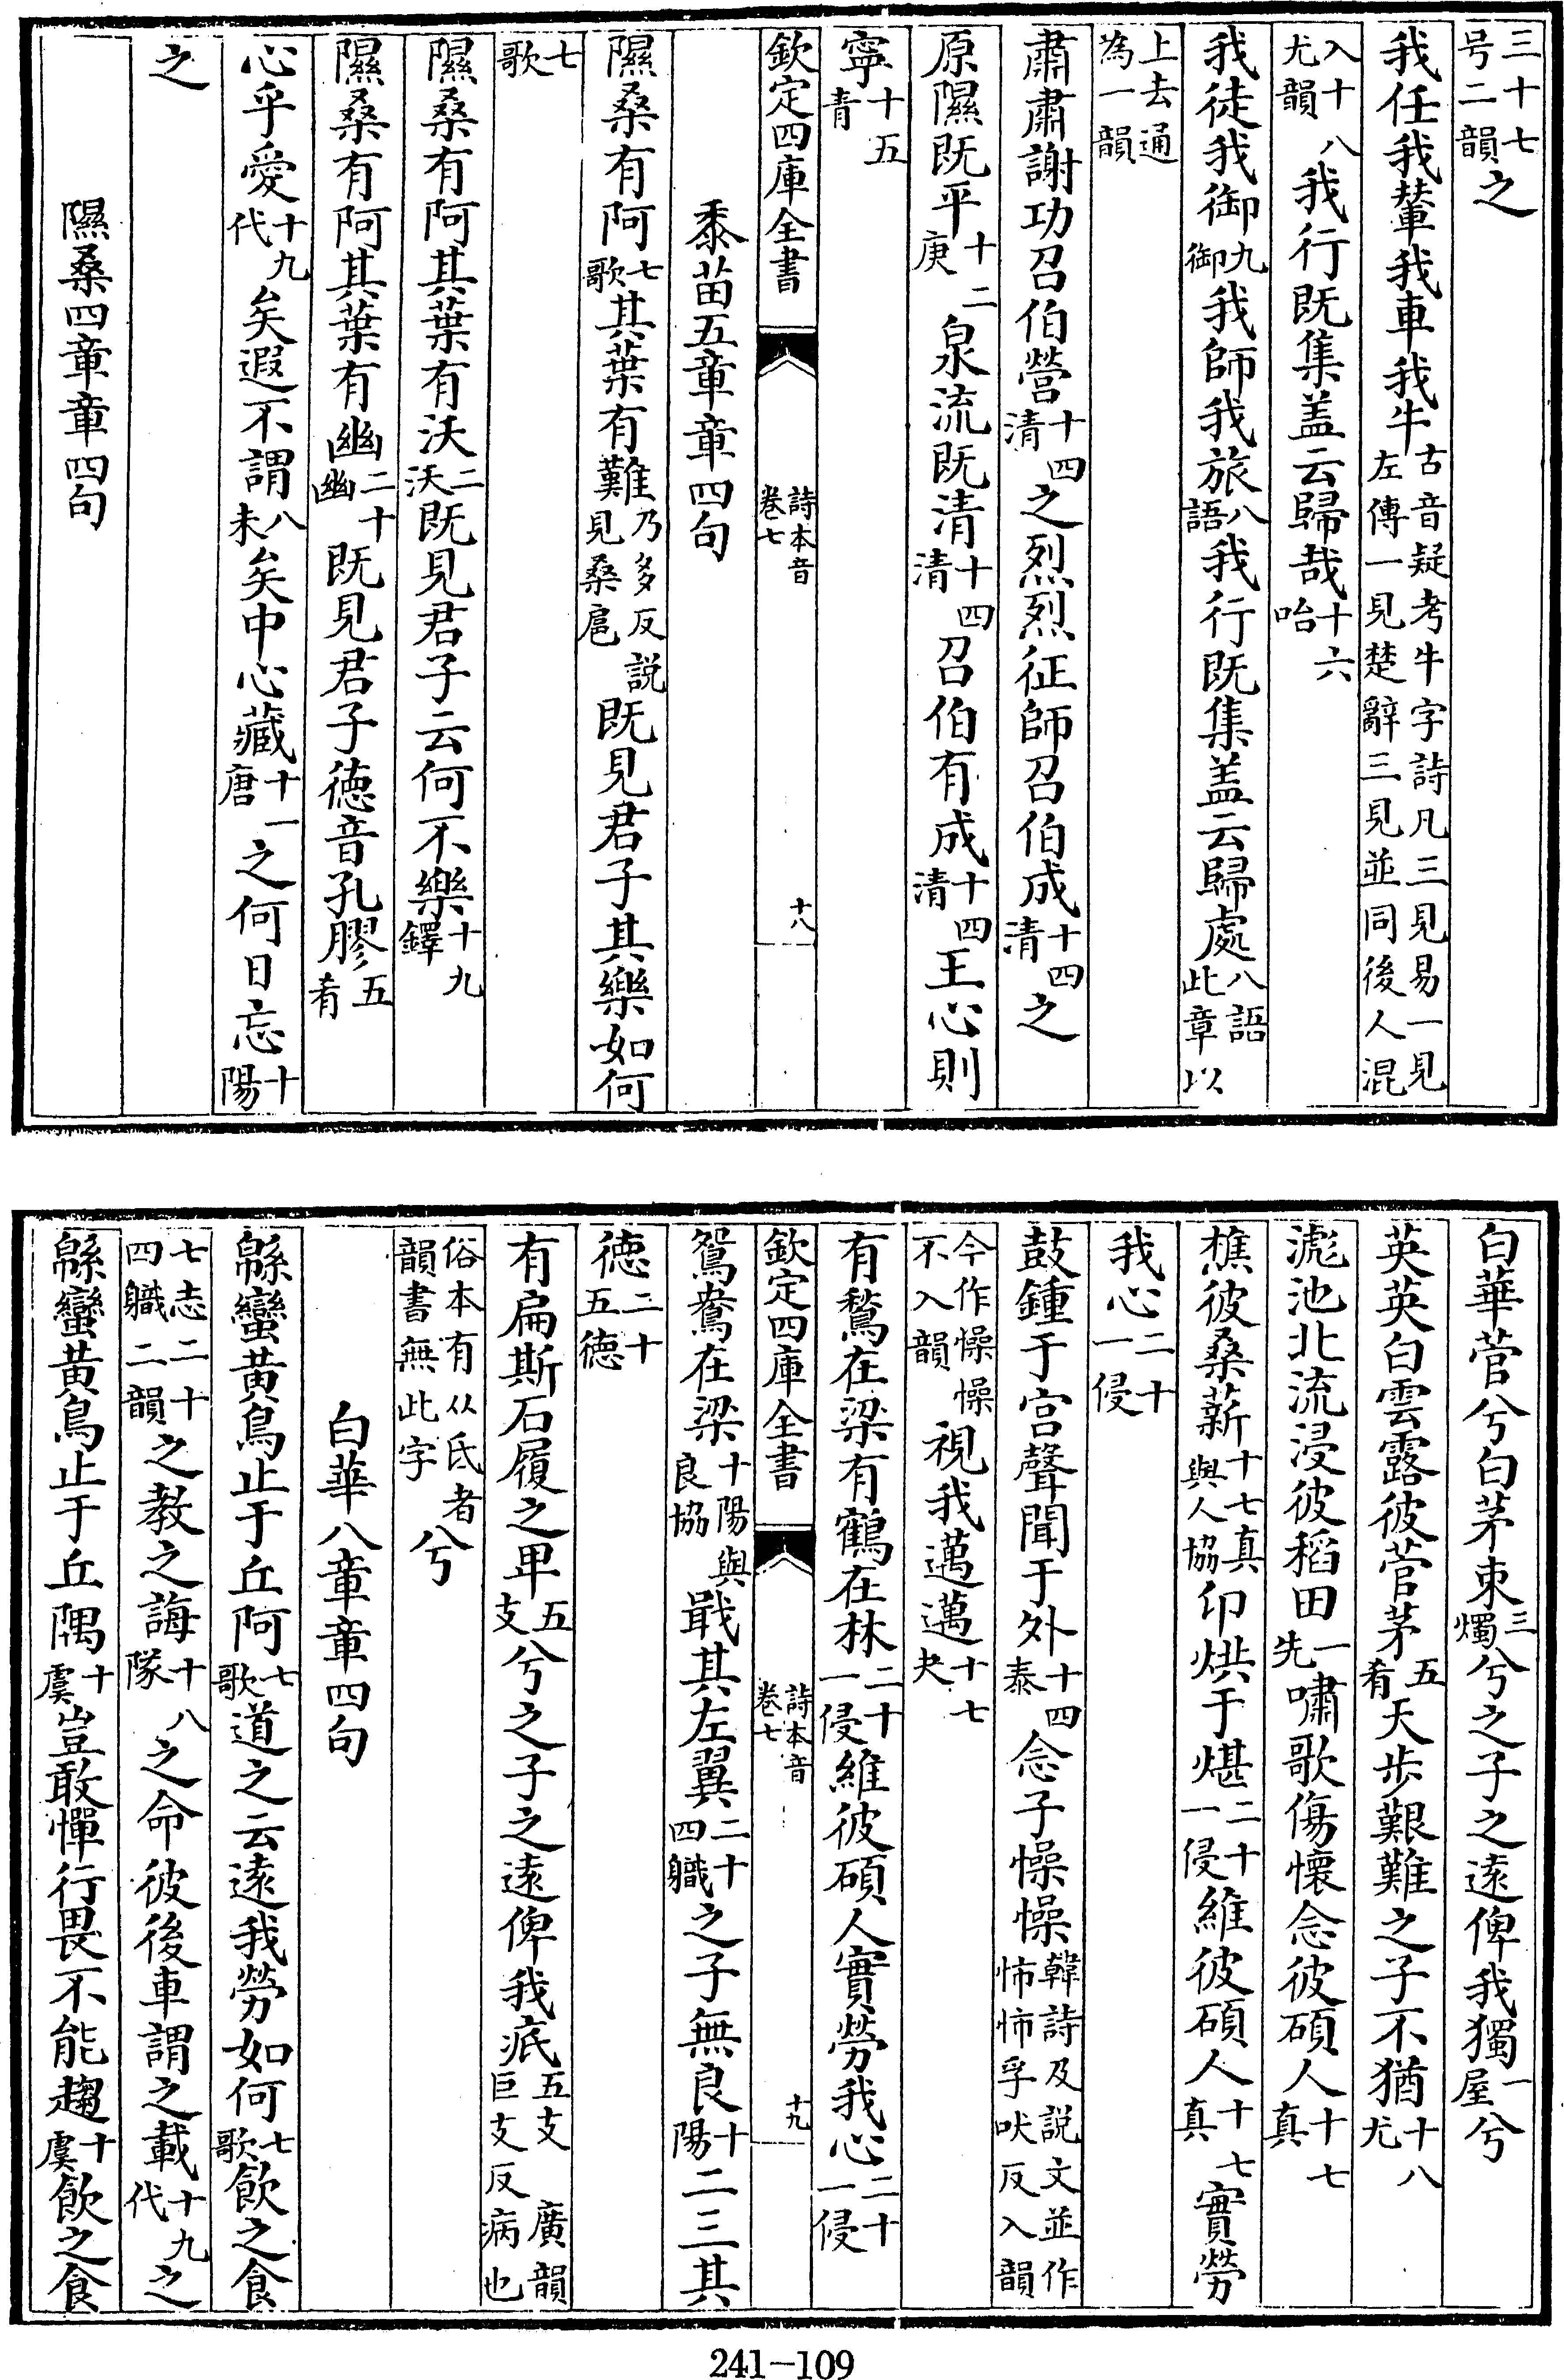 三十七号二韻之
我任我輦我車我牛古音疑考牛字詩凡三見易一見左傳一見楚辭三見並同後人混
入十八尤韻我行既集盖云歸哉十六咍
我徒我御九御我師我旅八語我行既集盖云歸處八語此章以
上去通為一韻
肅肅謝功召伯營十四清之烈烈征師召伯成十四清之
原隰既平十二庚泉流既清十四清召伯有成十四清王心則
寧十五青
欽定四庫全書 詩本音卷七 十八
黍苗五章章四句
隰桑有阿七歌其葉有難乃多反説見桑扈既見君子其樂如何
七歌
隰桑有阿其葉有沃二沃既見君子云何不樂十九鐸
隰桑有阿其葉有幽二十幽既見君子德音孔膠五肴
心乎愛十九代矣遐不謂八未矣中心藏十一唐之何日忘十陽
之
隰桑四章章四句
白華菅兮白茅束三燭兮之子之遠俾我獨一屋兮
英英白雲露彼菅茅五肴天步艱難之子不猶十八尤
滮池北流浸彼稻田一先嘯歌傷懷念彼碩人十七真
樵彼桑薪十七真與人協卬烘于煁二十一侵維彼碩人十七真實勞
我心二十一侵
鼓鍾于宫聲聞于外十四泰念子懆懆韓詩及説文並作怖怖孚吠反入韻
今作懆懆不入韻視我邁邁十七夬
有鶖在梁有鶴在林二十一侵維彼碩人實勞我心二十一侵
欽定四庫全書 詩本音卷七 十九
鴛鴦在梁十陽與良協戢其左翼二十四職之子無良十陽二三其
德二十五德
有扁斯石履之卑五支兮之子之遠俾我疧五支廣韻巨支反病也
俗本有从氏者韻書無此字兮
白華八章章四句
緜蠻黄鳥止于丘阿七歌道之云遠我勞如何七歌飲之食
七志二十四職二韻之教之誨十八隊之命彼後車謂之載十九代之
緜蠻黄鳥止于丘隅十虞豈敢憚行畏不能趨十虞飲之食
241-109